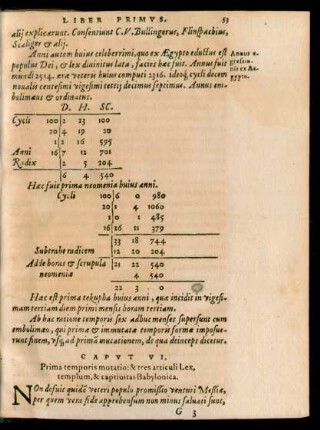 LIBER PRIMVS. 53
alij explicarunt. Consentiunt C. V. Bullingerus, Flinspachius,
Scaliger & alij.
Anni autem huius celeberrimi, quo ex Ægypto eductus est
populus Dei, & lex divinitus lata, facies hæc fuit. Annus fuit
mundi 2514. æra veteris huius computi 2316. ideoq; cycli decem
novalis centesimi vigesimi tertij decimus septimus. Annus em-
bolimæus & ordinatus.
Annus e-
gressio-
nis ex Ae-
gypto.
D. H. SC.
Cycli 100 2 23 100
20 4 19 20
1 2 16 595
Anni 16 7 12 701
Radix 2 5 204
6 4 540
Hæc fuit prima neomenia huius anni.
Cycli 100 6 0 980
20 1 4 1060
1 0 1 485
16 26 11 379
33 18 744
Subtrahe radicem 12 20 204
Adde horas & scrupula 21 22 540
neomenia 4 540
22 3 0
Hæc est prima tekupha huius anni, quæ incidit in vigesi-
mam tertiam diem primi mensis horam tertiam.
Ab hac ratione temporis sex adhuc menses supersunt cum
embolimæo, qui primæ & immutatæ temporis formæ imposue-
runt finem, usq; ad primā mutationem, de qua deinceps dicetur.
CAPVT VI.
Prima temporis mutatio: & tres articuli Lex,
templum, & captivitas Babylonica.
NOn defuit quidē veteri populo promissio venturi Messiæ,
per quem vera fide apprehensum non minus salvati sunt,
G 3